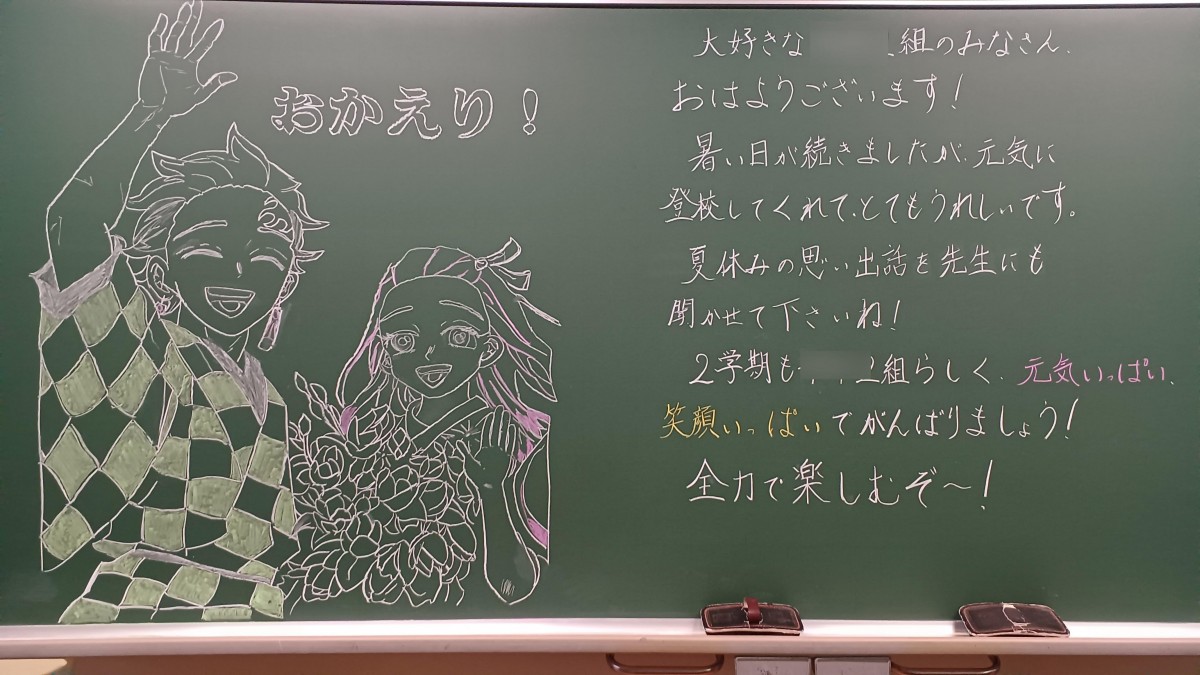 おかえり！
大好きな 組のみなさん、
おはようございます！
暑い日が続きましたが、元気に
登校してくれて、とてもうれしいです。
夏休みの思い出話を先生にも
聞かせて下さいね！
2学期も 2組らしく、元気いっぱい、
笑顔いっぱいでがんばりましょう！
全力で楽しむぞ～！